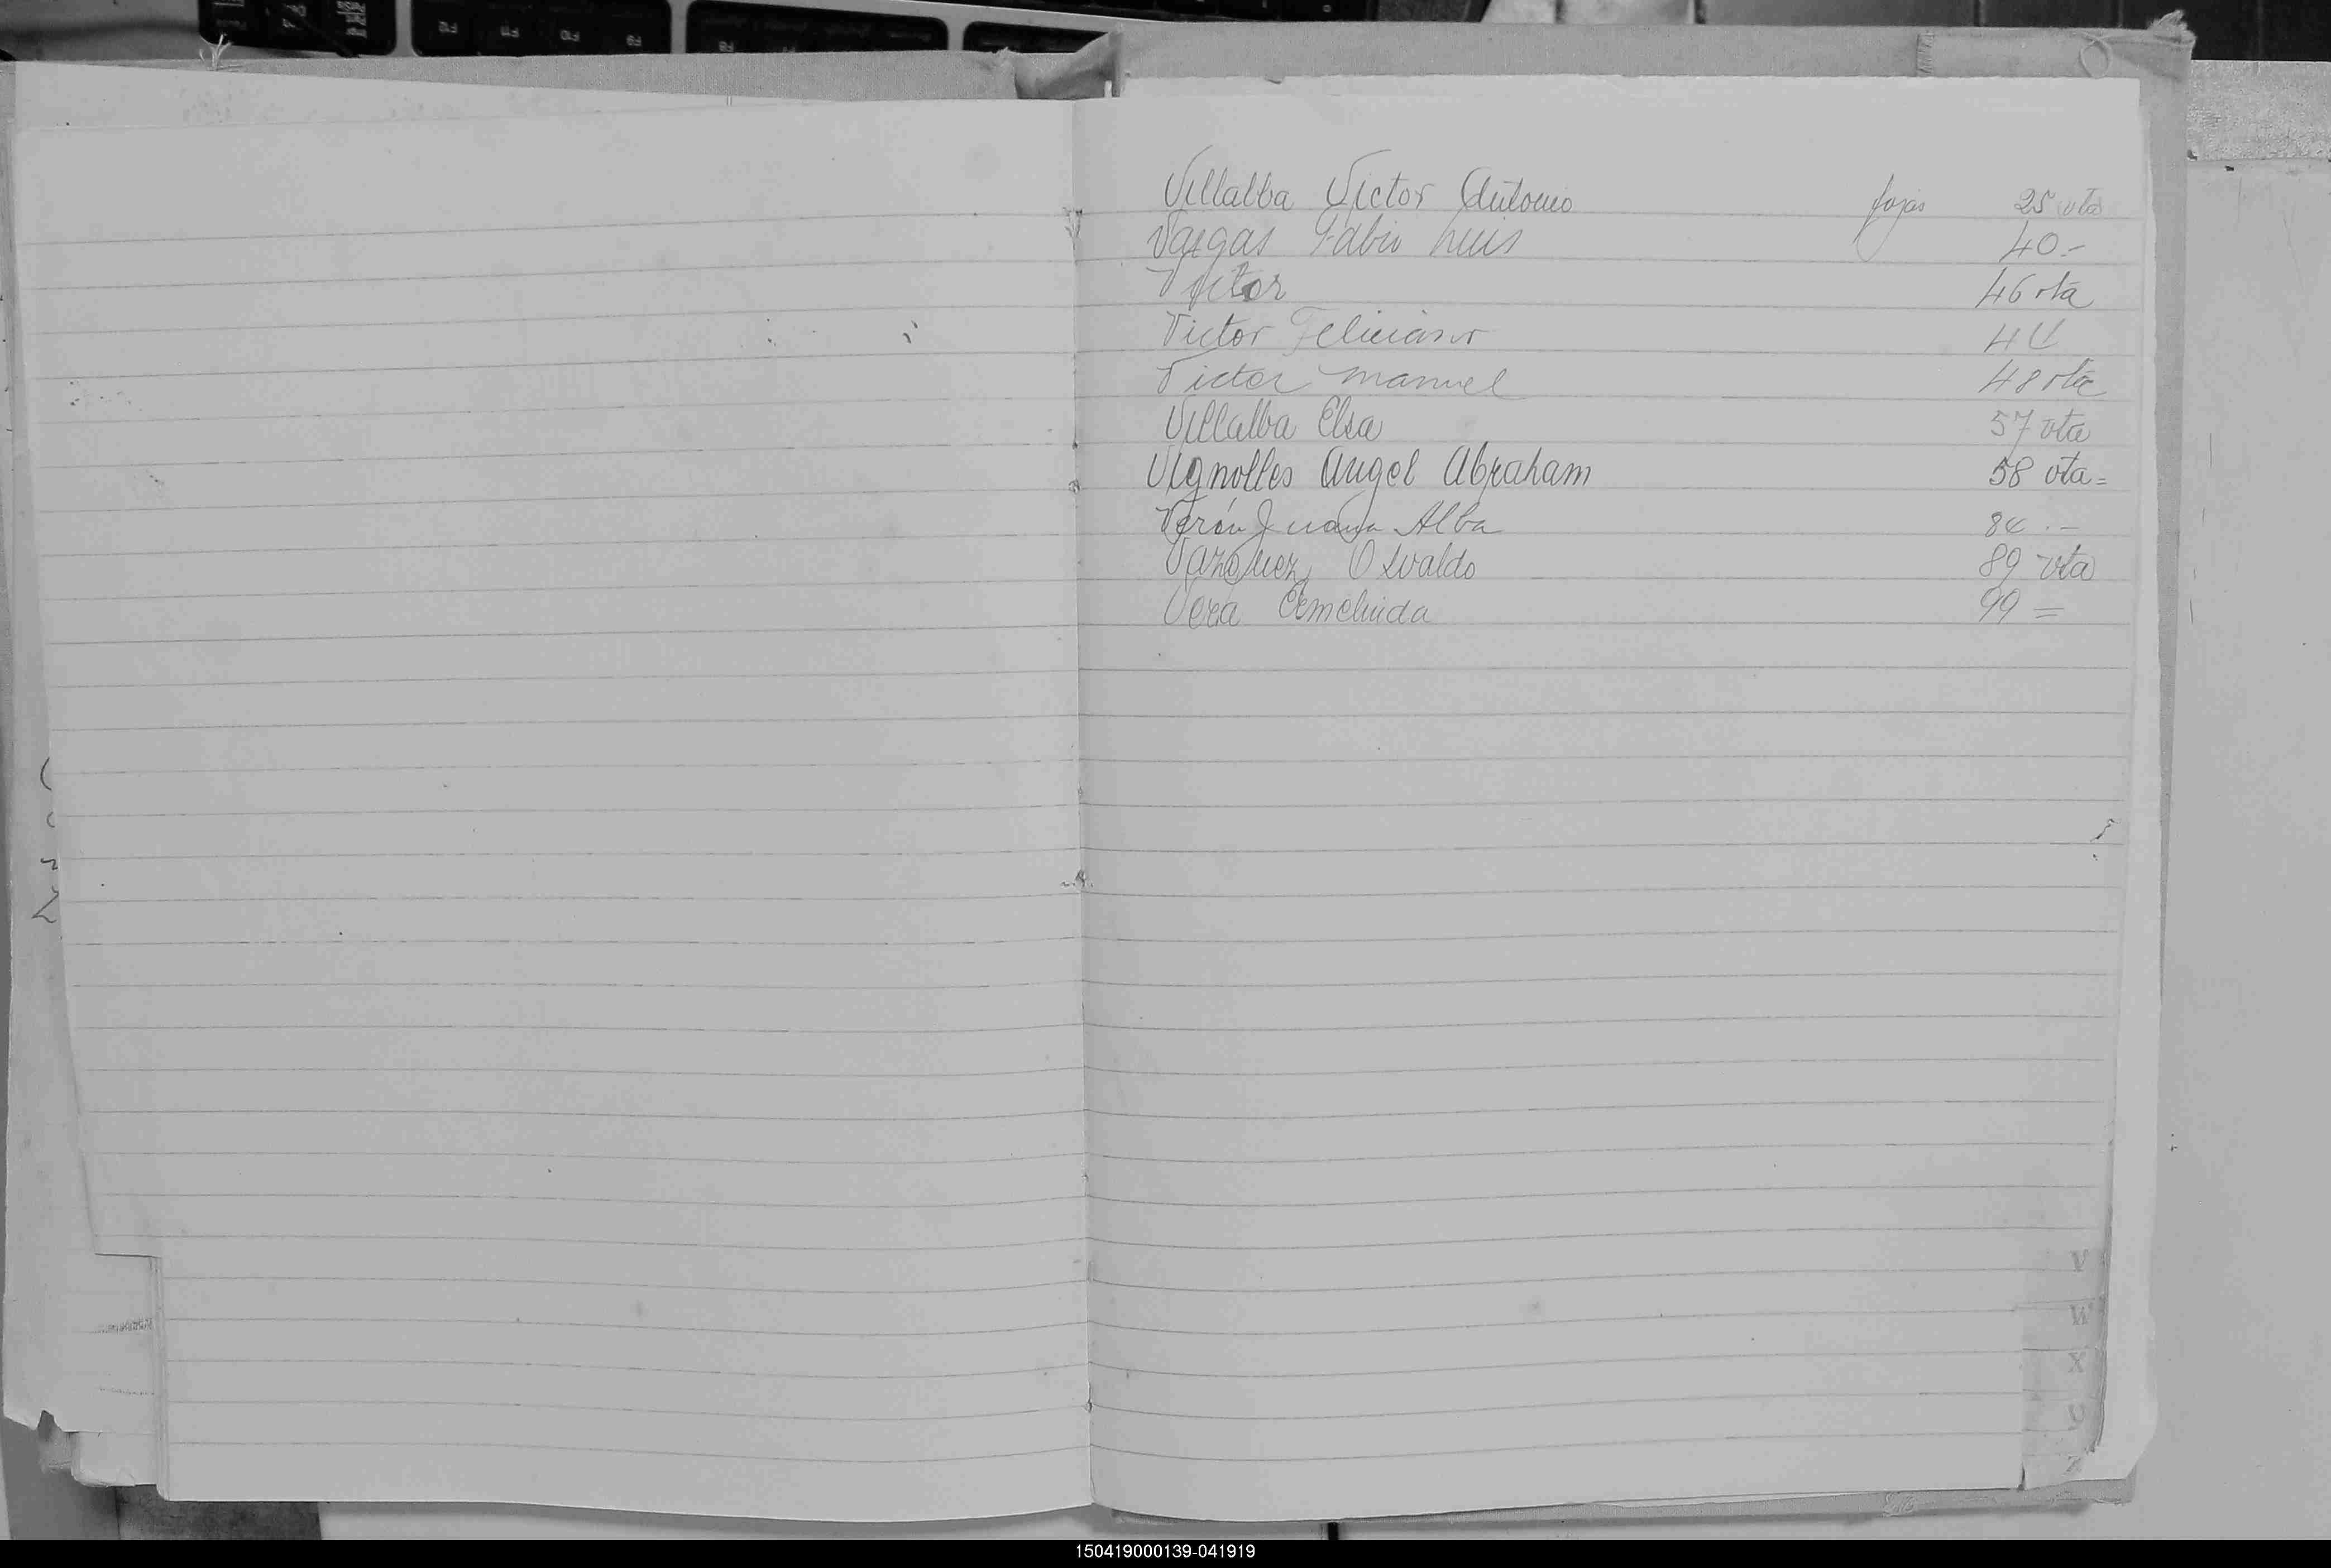 Villalba Victor Antonio fojas 25 vta
Vargas Fabio Luis 40.-
Victor 46 vta
Victor Feliciano
Victor Manuel 48 vta
Villalba Elsa 57 vta
Vignolles Angel Abraham 58 vta=
Verón Juana Alba
Vazquez Osvaldo 89 vta
Vera Ermelinda 99 =
V
W
X
Z
150419000139-041919